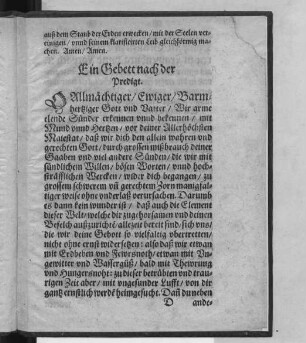 auß dem Staub der Erden erwecken / mit der Seelen ver-
einigen / vnnd seinem klarificirten Leib gleichförmig ma-
chen. Amen / Amen.
Ein Gebett nach der
Predigt.
O Allmächtiger / Ewiger / Barm-
hertziger Gott vnd Vatter / Wir arme
elende Sünder erkennen vnnd bekennen / mit
Mund vnnd Hertzen / vor deiner Allerhöchsten
Maiestat / daß wir dich den allein wahren vnd
gerechten Gott / durch grossen mißbrauch deiner
Gaaben vnd viel andere Sünden / die wir mit
sündlichem Willen / bösen Worten / vnnd hoch-
sträfflichen Wercken / wider dich begangen / zu
grossem schwerem vñ gerechtem Zorn manigfal-
tiger weise ohne vnderlaß verursachen. Darumb
es dann kein wunder ist / daß auch die Element
dieser Welt / welche dir zugehorsamen vnd deinen
Befelch außzuricht[en] allezeit bereit sind / sich vns /
die wir deine Gebott so vielfältig vbertretten /
nicht ohne ernst widersetzen: also daß wir etwan
mit Erdbeben vnd Fewrsnoth / etwan mit Vn-
gewitter vnd Wassergüß / bald mit Thewrung
vnd Hungersnoht: zu dieser betrübten vnd trau-
rigen Zeit aber / mit vngesunder Lufft / von dir
gantz ernstlich werdẽ heimgesucht. Dañ du neben
D ande-